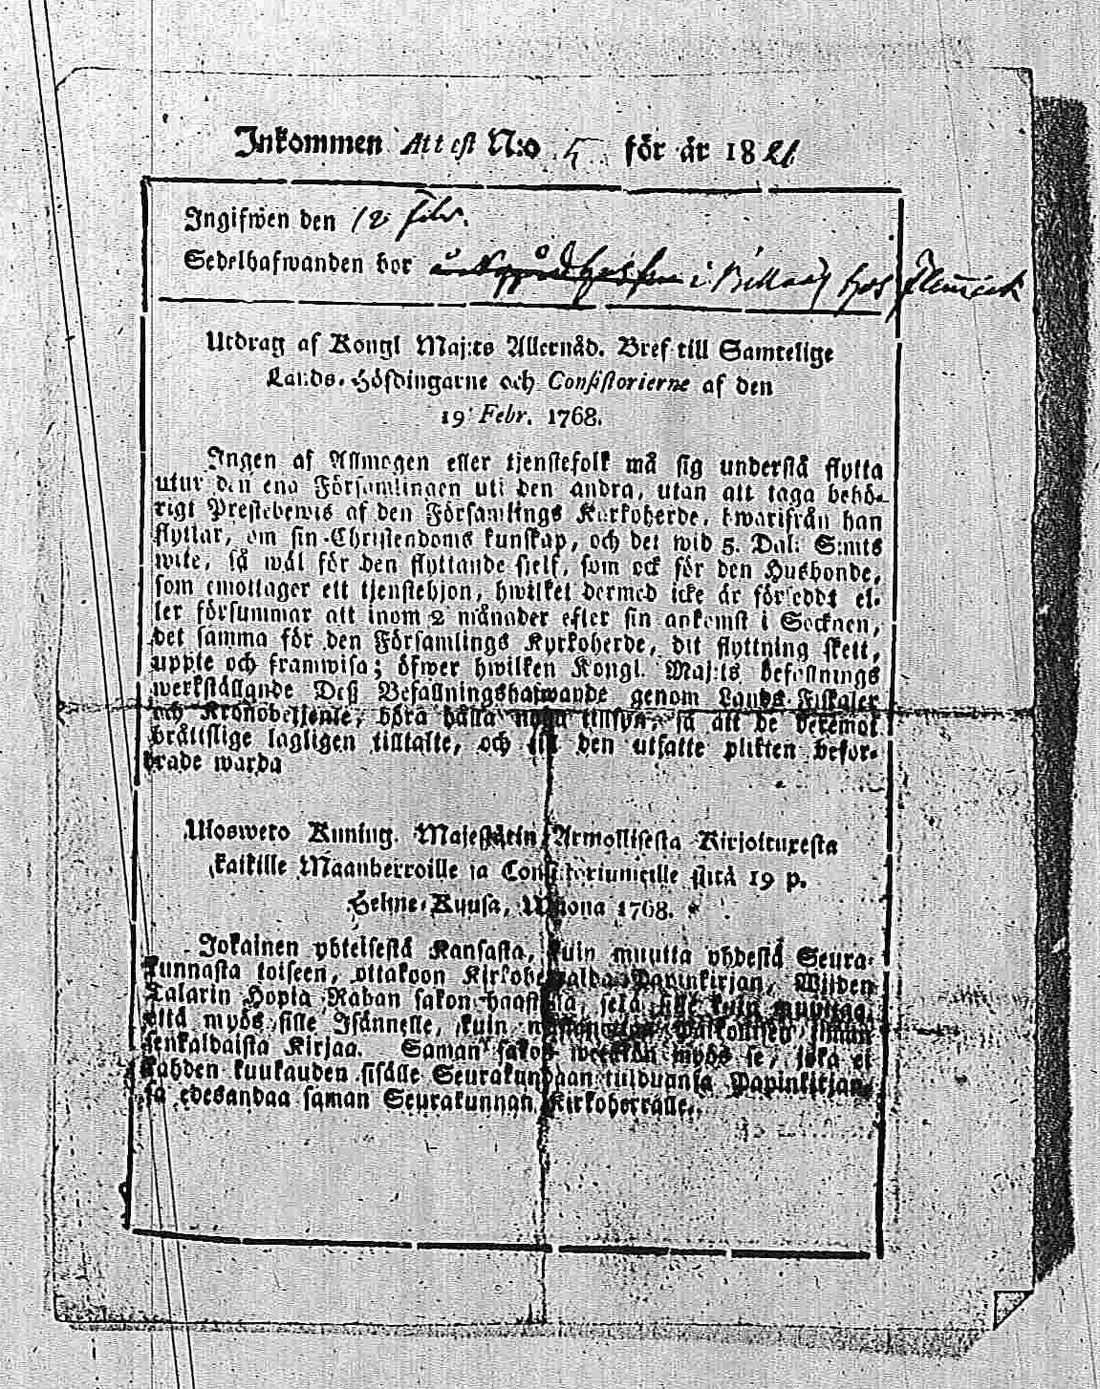 Inkommen Attest N:o 5 för år 1821
Ingifwen den 12 Febr.
Sedelhafwanden bor i hos
Utdrag af Kongl Maj:ts Allernåd. Bref till Samtelige
Lands-Höfdingarne och Consistorierne af den
19 Febr. 1768.
Ingen af Allmogen eller tjenstefolk må sig understå flytta
utur den ena Församlingen uti den andra, utan att taga behö-
rigt Prestebewis af den Församlings Kyrkoherde, hwarifrån han
flyttar, om sin Christendoms kunskap, och det wid 5. Dal. S:mts
wite, så wäl för den flyttande sjelf, som ock för den Husbonde,
som emottager ett tjenstehjon, hwilket dermed icke är förseddt el-
ler försummar att inom 2 månader efter sin ankomst i Socknen,
det samma för den Församlings Kyrkoherde, dit flyttning skett,
uppte och framwisa; öfwer hwilken Kongl. Maj:ts befallnings
werkställande Deß Befallningshafwande genom Lands-Fiskaler
och Kronobetjente, böra hålla noga tillsyn, så att de deremot
bråttslige lagligen tilltalte, och till den utsatte plikten befor-
drade warda
Ulosweto Kuning. Majestätin Armollisesta Kirjoituxesta
kaikille Maanherroille ja Consistoriumeille siitä 19 p.
Helme-Kuusa, Wuona 1768.
Jokainen yhteisestä Kansasta, kuin muutta yhdestä Seura-
kunnasta toiseen, ottakoon Kirkoherralda Papinkirjan, Wijden
Talarin Hopia Rahan sakon haastolla, sekä sille kuin muuttaa,
että myös sille Isännelle, kuin
senkaldaista Kirjaa. Saman sakon wetäkön myös se, joka ei
kahden kuukauden sisälle Seurakundaan tulduansa Papinkirjan-
sa edesandaa saman Seurakunnan Kirkoherralle.